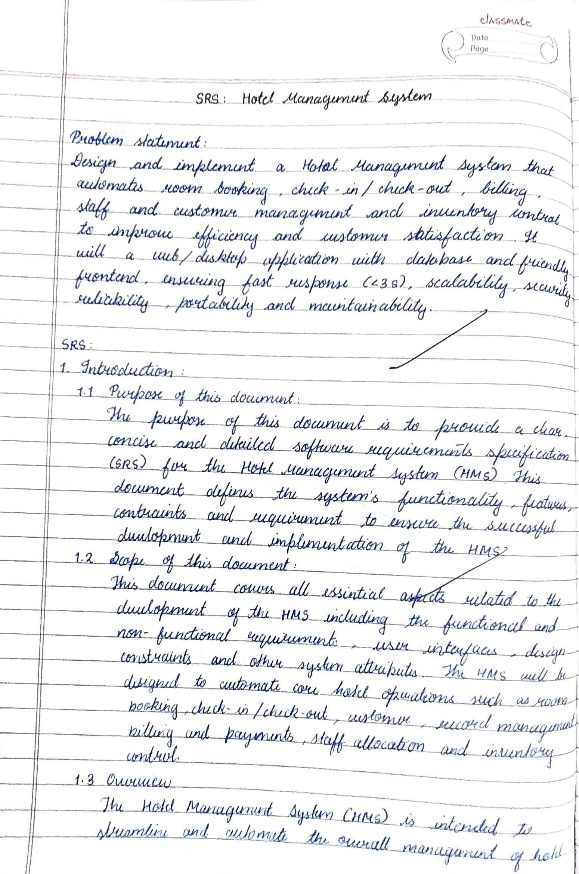 classmate
Date
Page
SRS: Hotel Management System
Problem statement:
Design and implement a Hotel Management System that
automates room booking, check-in/check-out, billing,
staff and customer management and inventory control
to improve efficiency and customer satisfaction. It
will a web/desktop application with database and friendly
frontend, ensuring fast response (<3s), scalability, security,
reliability, portability and maintainability.
SRS:
1. Introduction:
1.1 Purpose of this document:
The purpose of this document is to provide a clear,
concise and detailed software requirements specification
(SRS) for the Hotel Management system (HMS) This
document defines the system's functionality, features,
contraints and requirement to ensure the successful
development and implementation of the HMS.
1.2 Scope of this document:
This document covers all essential aspects related to the
development of the HMS including the functional and
non-functional requirements, user interfaces, design
constraints and other system attributes. The HMS will be
designed to automate core hotel operations such as room
booking, check-in/check-out, customer, record management,
billing and payments, staff allocation and inventory
control.
1.3 Overview
The Hotel Management System (HMS) is intended to
streamline and automate the overall management of hotel